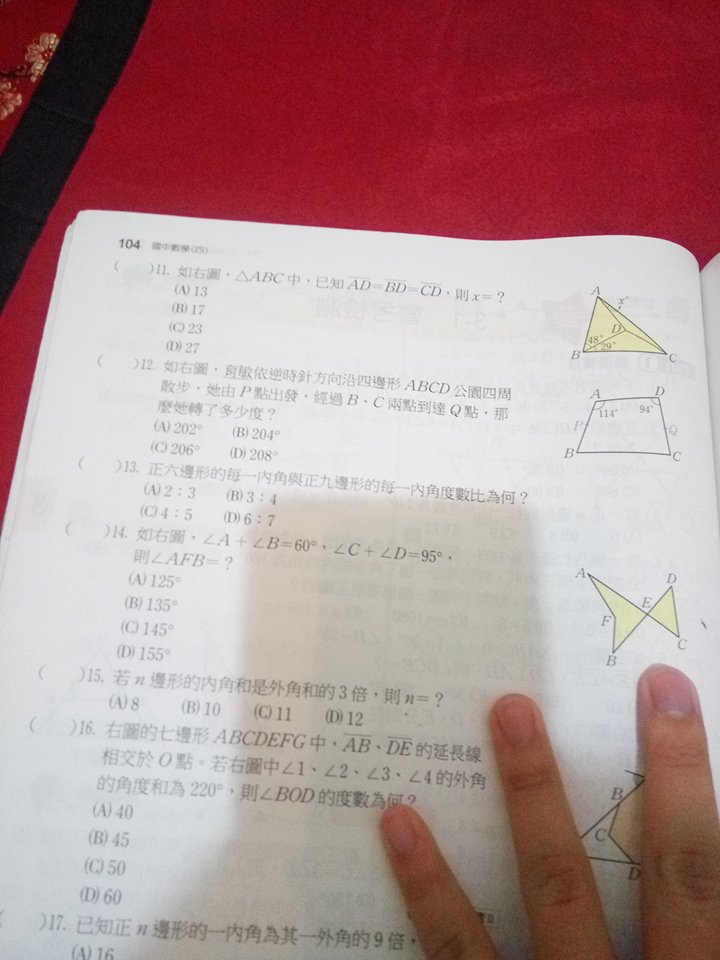 104 國中數學(四)
( )11. 如右圖，△ABC中，已知AD=BD=CD，則x=？
(A) 13
(B) 17
(C) 23
(D) 27
A
x°
D
48°
29°
B
C
( )12. 如右圖，育敏依逆時針方向沿四邊形ABCD公園四周
散步，她由P點出發，經過B、C兩點到達Q點，那
麼她轉了多少度？
(A) 202° (B) 204°
(C) 206° (D) 208°
A D
114° 94°
P Q
B C
( )13. 正六邊形的每一內角與正九邊形的每一內角度數比為何？
(A) 2：3 (B) 3：4
(C) 4：5 (D) 6：7
( )14. 如右圖，∠A+∠B=60°，∠C+∠D=95°，
則∠AFB=？
(A) 125°
(B) 135°
(C) 145°
(D) 155°
A D
E
F
C
B
( )15. 若n邊形的內角和是外角和的3倍，則n=？
(A) 8 (B) 10 (C) 11 (D) 12
( )16. 右圖的七邊形ABCDEFG中，AB、DE的延長線
相交於O點。若右圖中∠1、∠2、∠3、∠4的外角
的角度和為220°，則∠BOD的度數為何？
(A) 40
(B) 45
(C) 50
(D) 60
B
C
D
( )17. 已知正n邊形的一內角為其一外角的9倍，
(A) 16